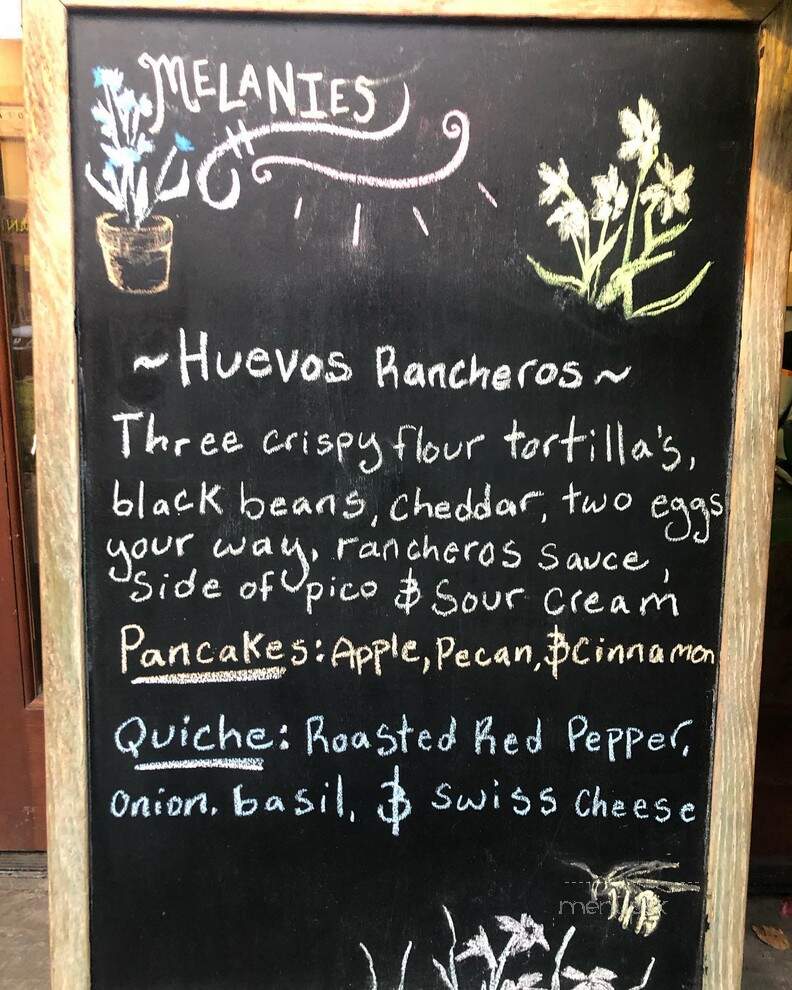 MELANIES
~Huevos Rancheros~
Three crispy flour tortilla's,
black beans, cheddar, two eggs
your way, rancheros sauce,
Side of pico & Sour cream
Pancakes: Apple, Pecan, & Cinnamon
Quiche: Roasted Red Pepper,
onion, basil, & swiss cheese